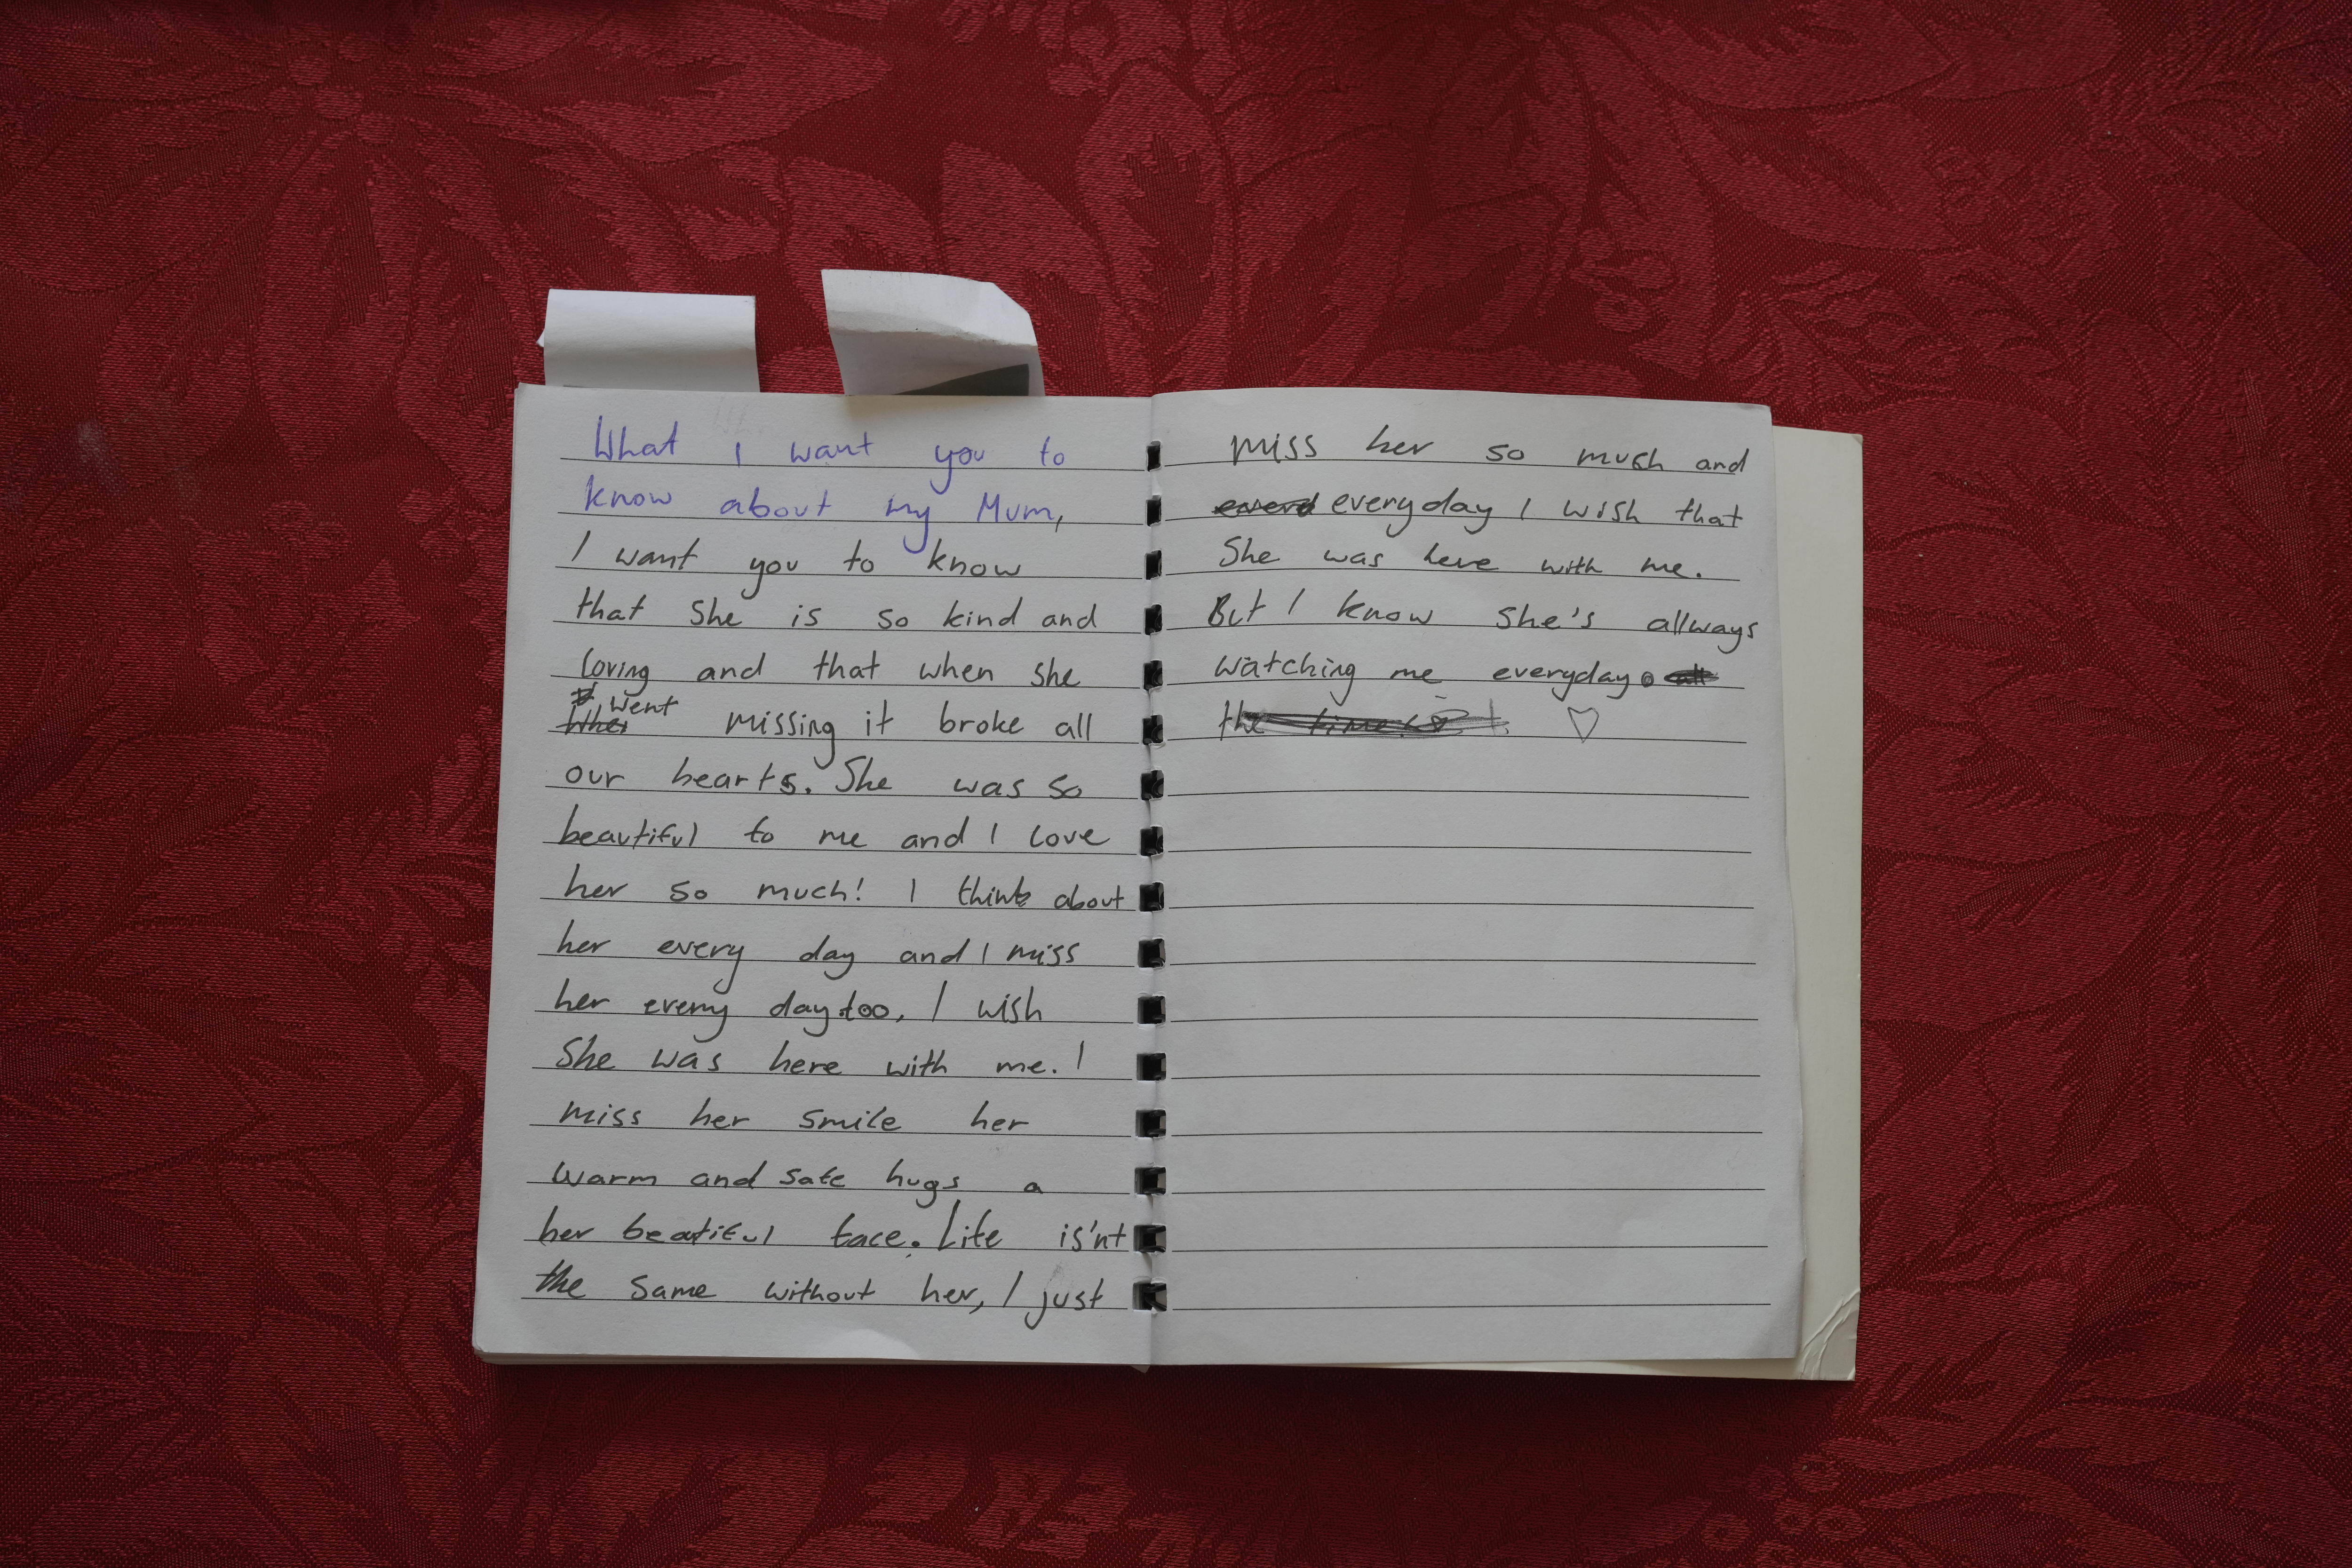 What I want you to
know about my Mum,
I want you to know
that She is so kind and
loving and that when she
went missing it broke all
our hearts. She was so
beautiful to me and I love
her so much! I think about
her every day and I miss
her every day too. I wish
She was here with me. I
miss her smile her
warm and safe hugs a
her beatiful face. Life is'nt
the same without her, I just
miss her so much and
everyday I wish that
She was here with me.
But I know She's allways
watching me everyday.
the